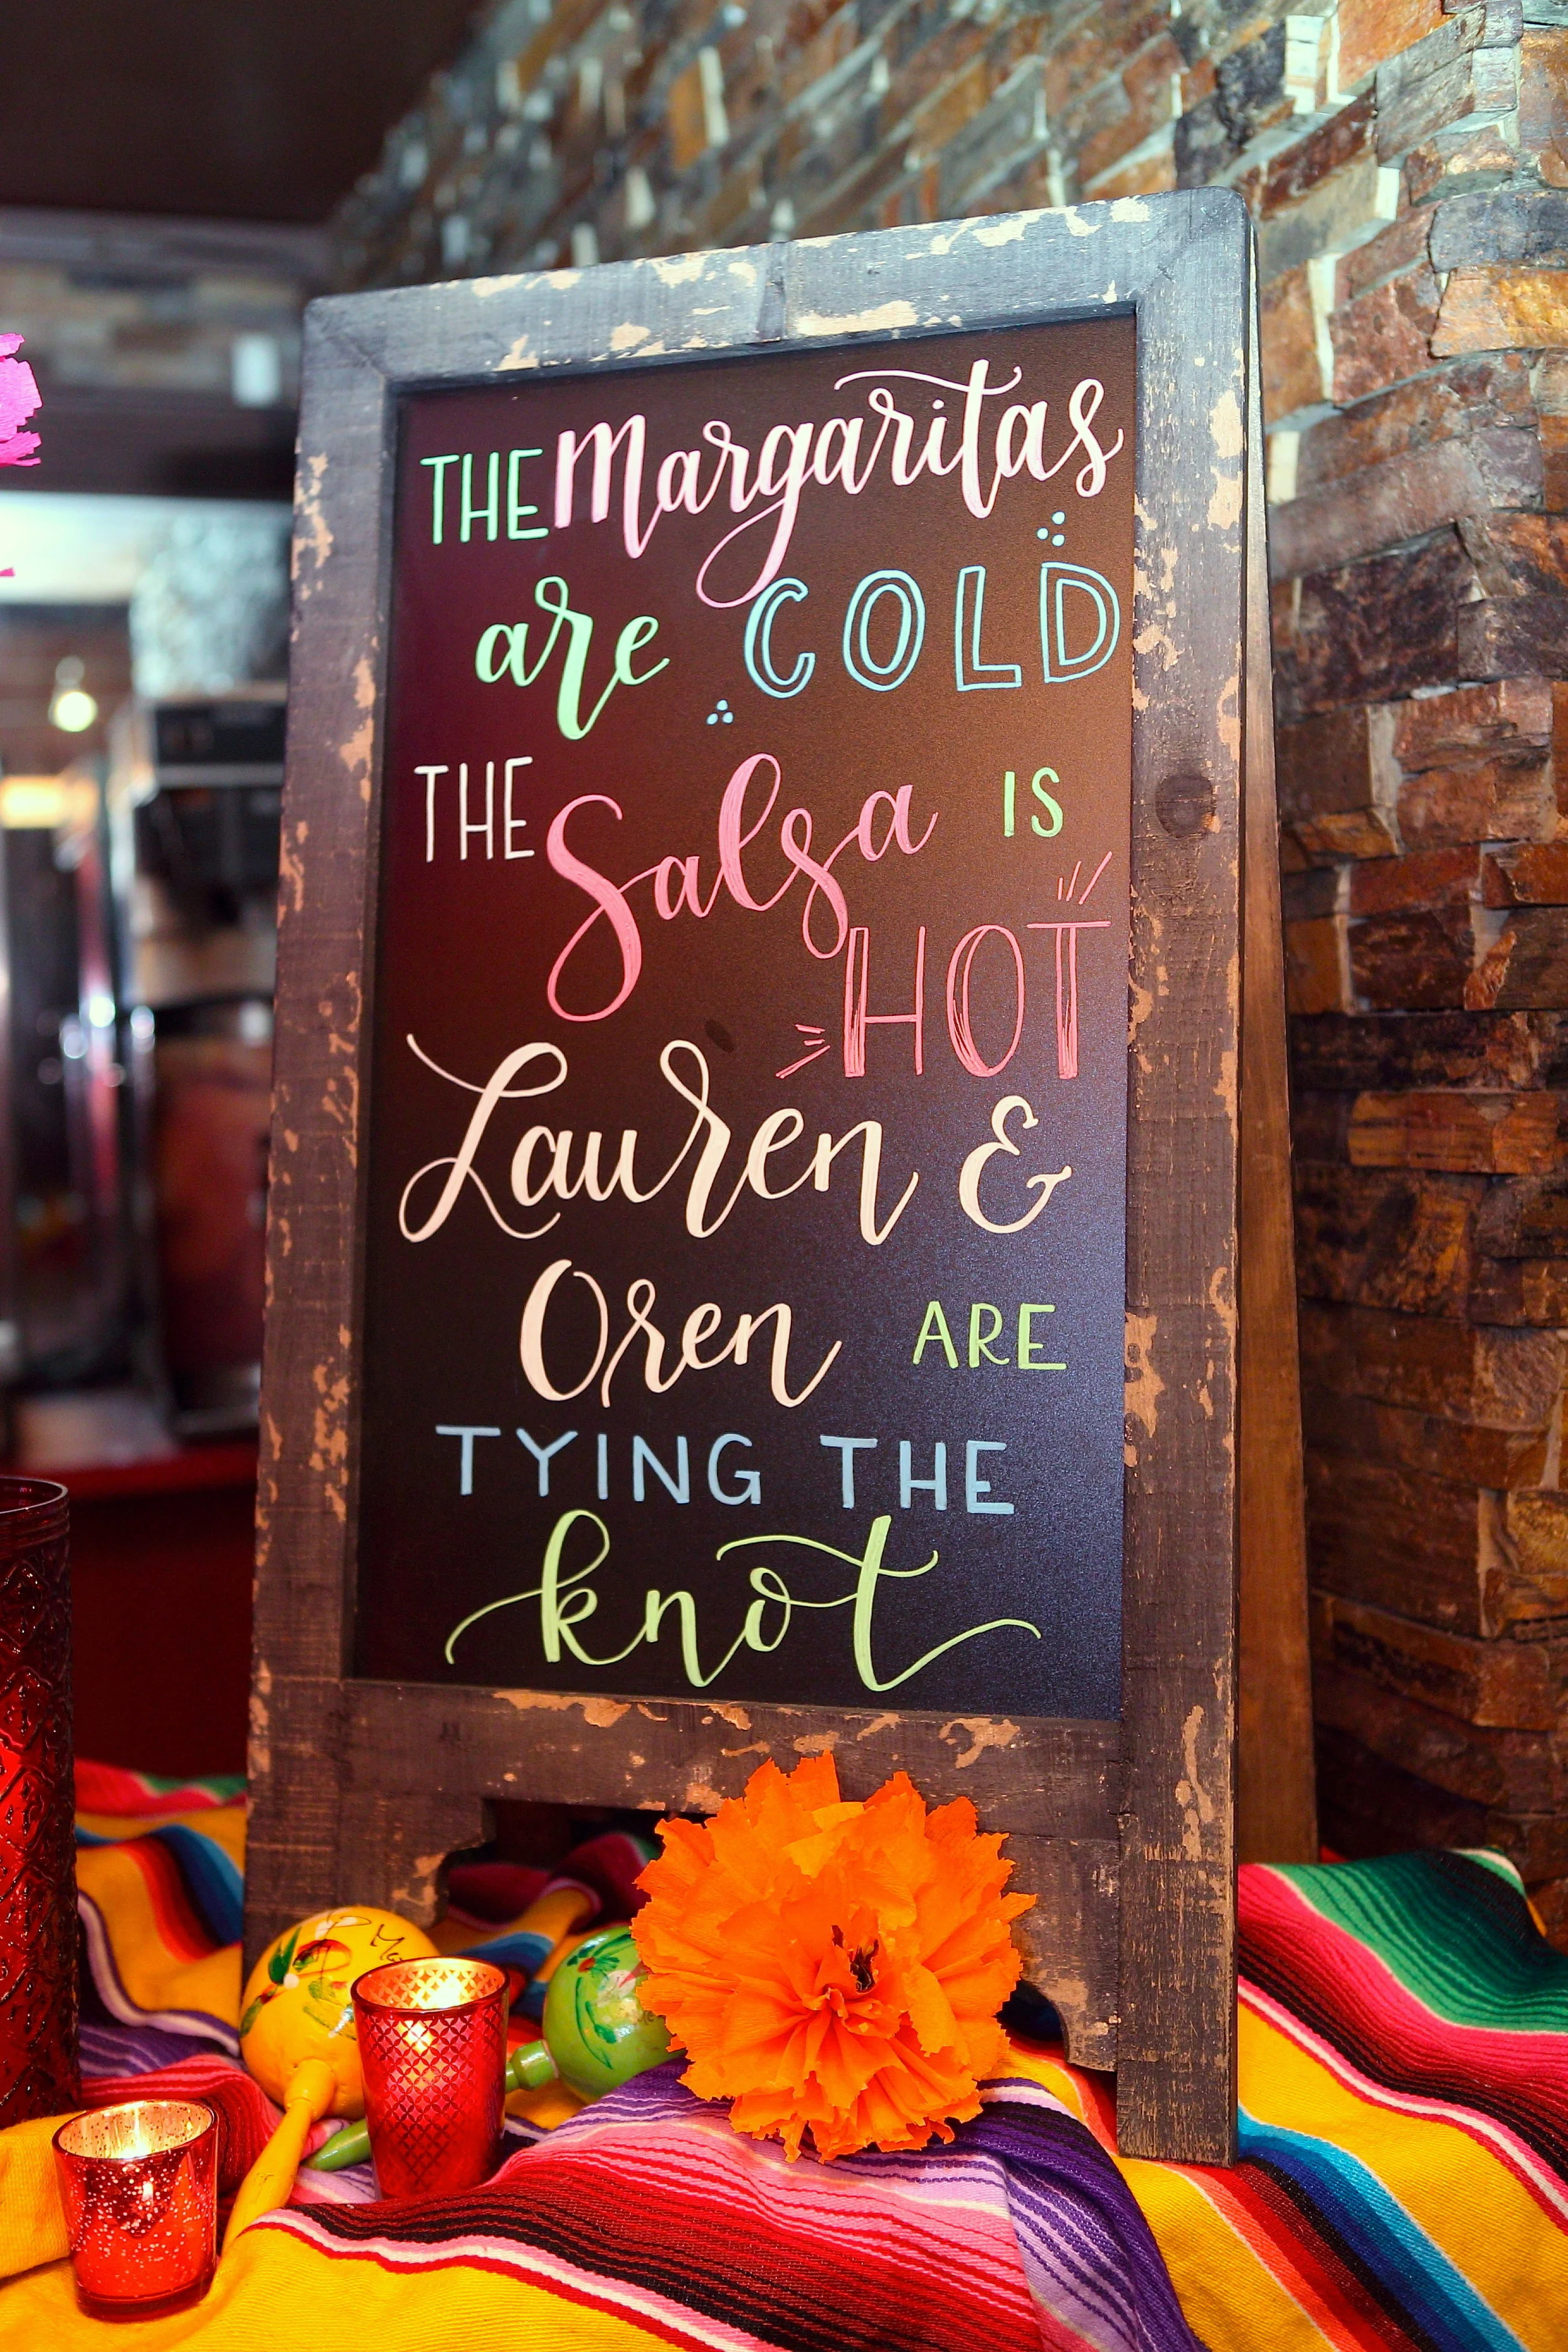 THE Margaritas
are COLD
THE Salsa IS
HOT
Lauren &
Oren ARE
TYING THE
knot